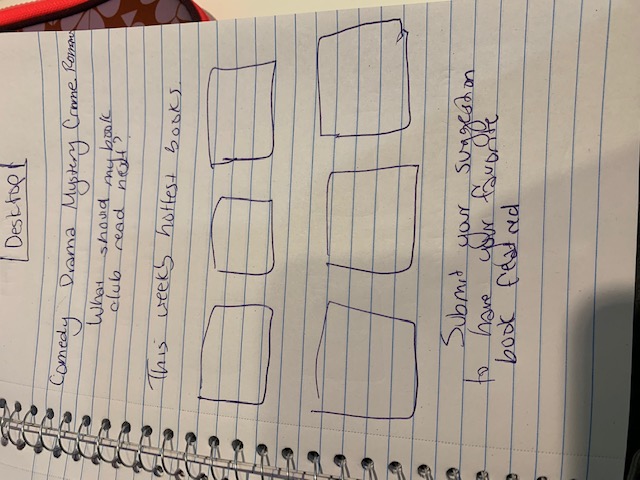 Desktop
Comedy Drama Mystery Crime Romance
What shoud my book
club read next?
This week's hottest books.
Submit your suggestion
to have your favorite
book featred